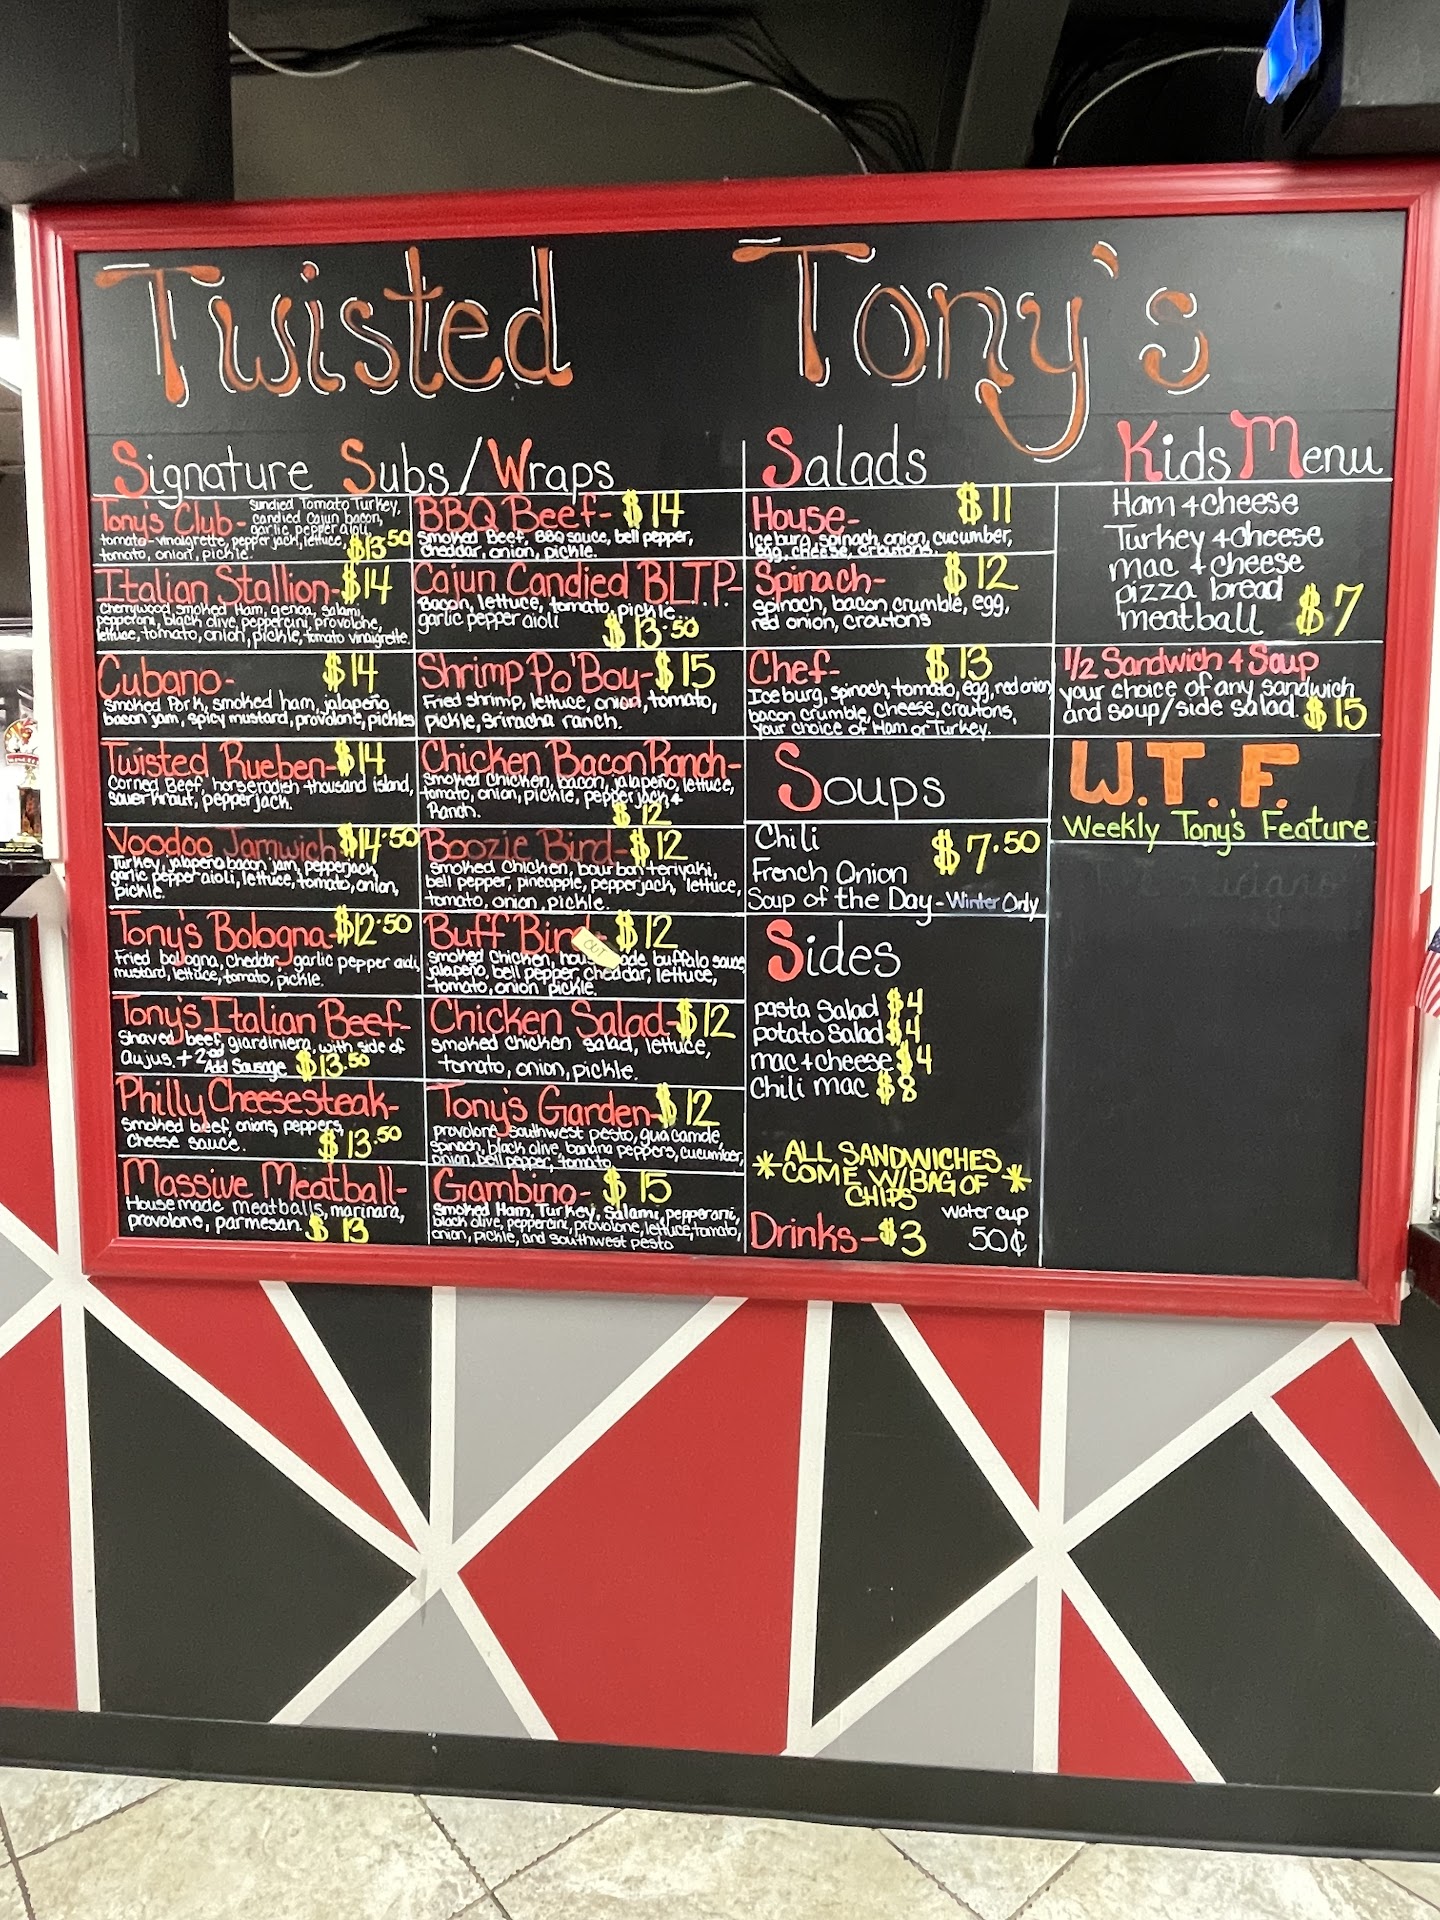 Twisted Tony's
Signature Subs/Wraps
Tony's Club- Sundied Tomato Turkey,
candied Cajun bacon,
garlic pepper aioli,
tomato-vinaigrette, pepper jack, lettuce,
tomato, onion, pickle. $13.50
Italian Stallion- $14
Cherrywood smoked Ham, genoa, salami,
pepperoni, black olive, peppercini, provolone,
lettuce, tomato, onion, pickle, tomato vinaigrette.
Cubano- $14
Smoked Pork, smoked ham, jalapeño
bacon jam, spicy mustard, provolone, pickles
Twisted Rueben- $14
Corned Beef, horseradish thousand island,
sauerkraut, pepperjack.
Voodoo Jamwich $14.50
Turkey, jalapeño bacon jam, pepperjack,
garlic pepper aioli, lettuce, tomato, onion,
pickle.
Tony's Bologna- $12.50
Fried bologna, cheddar, garlic pepper aioli,
mustard, lettuce, tomato, pickle.
Tony's Italian Beef-
Shaved beef, giardiniera, with side of
aujus. + 2nd Add Sausage $13.50
Philly Cheesesteak-
Smoked beef, onions, peppers,
Cheese sauce. $13.50
Massive Meatball-
House made meatballs, marinara,
provolone, parmesan. $13
BBQ Beef- $14
Smoked Beef, BBQ sauce, bell pepper,
cheddar, onion, pickle.
Cajun Candied BLTP-
Bacon, lettuce, tomato, pickle...
garlic pepper aioli
$13.50
Shrimp Po'Boy- $15
Fried shrimp, lettuce, onion, tomato,
pickle, sriracha ranch.
Chicken Bacon Ranch-
Smoked Chicken, bacon, jalapeño, lettuce,
tomato, onion, pickle, pepper jack, +
Ranch. $12
Boozie Bird- $12
Smoked Chicken, bourbon teriyaki,
bell pepper, pineapple, pepperjack, lettuce,
tomato, onion, pickle.
Buff $12
OUT
smoked chicken, buffalo sauce,
jalapeño, bell pepper, cheddar, lettuce,
tomato, onion pickle.
Chicken Salad- $12
Smoked chicken salad, lettuce,
tomato, onion, pickle.
Tony's Garden- $12
provolone, southwest pesto, guacamole,
spinach, black olive, banana peppers, cucumber,
onion, bell pepper, tomato
Gambino- $15
Smoked Ham, Turkey, Salami, pepperoni,
black olive, peppercini, provolone, lettuce, tomato,
onion, pickle, and southwest pesto
Salads
House- $11
Iceburg, spinach, onion, cucumber,
egg, cheese, croutons.
Spinach- $12
spinach, bacon crumble, egg,
red onion, croutons
Chef- $13
Iceburg, spinach, tomato, egg, red onion,
bacon crumble, cheese, croutons,
your choice of Ham or Turkey.
Soups
Chili $7.50
French Onion
Soup of the Day- Winter Only
Sides
pasta Salad $4
potato Salad $4
mac + cheese $4
Chili mac $8
* ALL SANDWICHES *
COME W/BAG OF
CHIPS
Drinks- $3
Water cup
50¢
Kids Menu
Ham + cheese
Turkey + cheese
mac + cheese
pizza bread
meatball $7
1/2 Sandwich + Soup
your choice of any sandwich
and soup/side salad. $15
W.T.F.
Weekly Tony's Feature